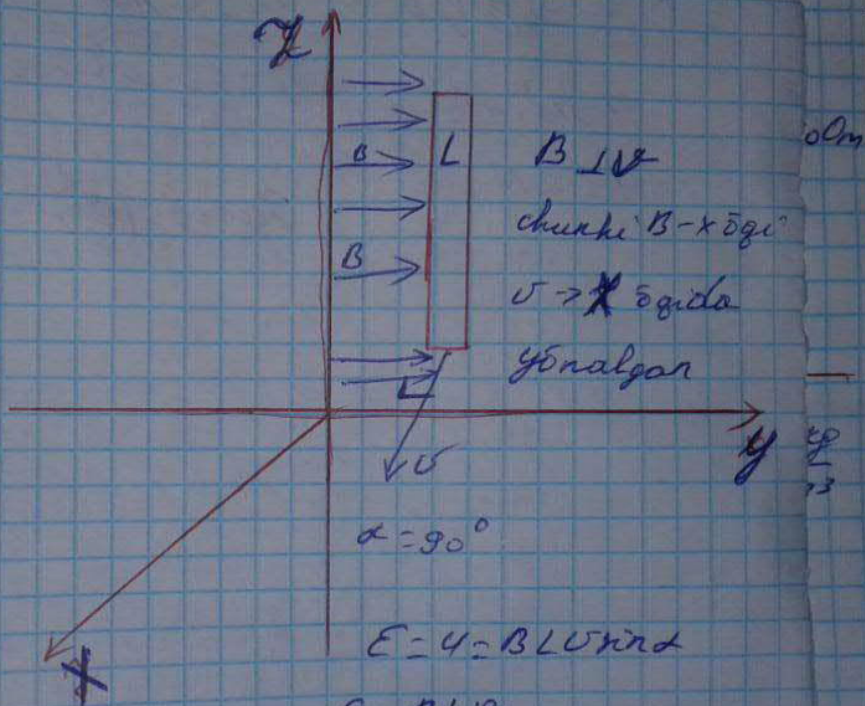 Z
B L
B
B ⊥ v
chunki B-x o'qi
v → X o'qida
yo'nalgan
Y
v
α = 90°
X
ε = U = BLv sin α